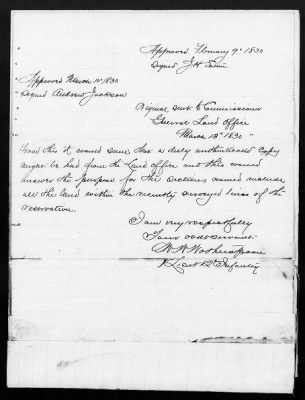 Approved February 9th 1830
Signed J H Eaton
Approved March 10th 1830
Signed Andrew Jackson
Original sent to Commissioner
General Land Office
March 15th 1830"
From this it would seem that a duly authenticated copy
might be had from the Land Office and this would
answer the purpose for the sections named
all the land within the recently surveyed lines of the
reservation.
I am very respectfully
Your obdt servant
1st Lieut 12th Infantry